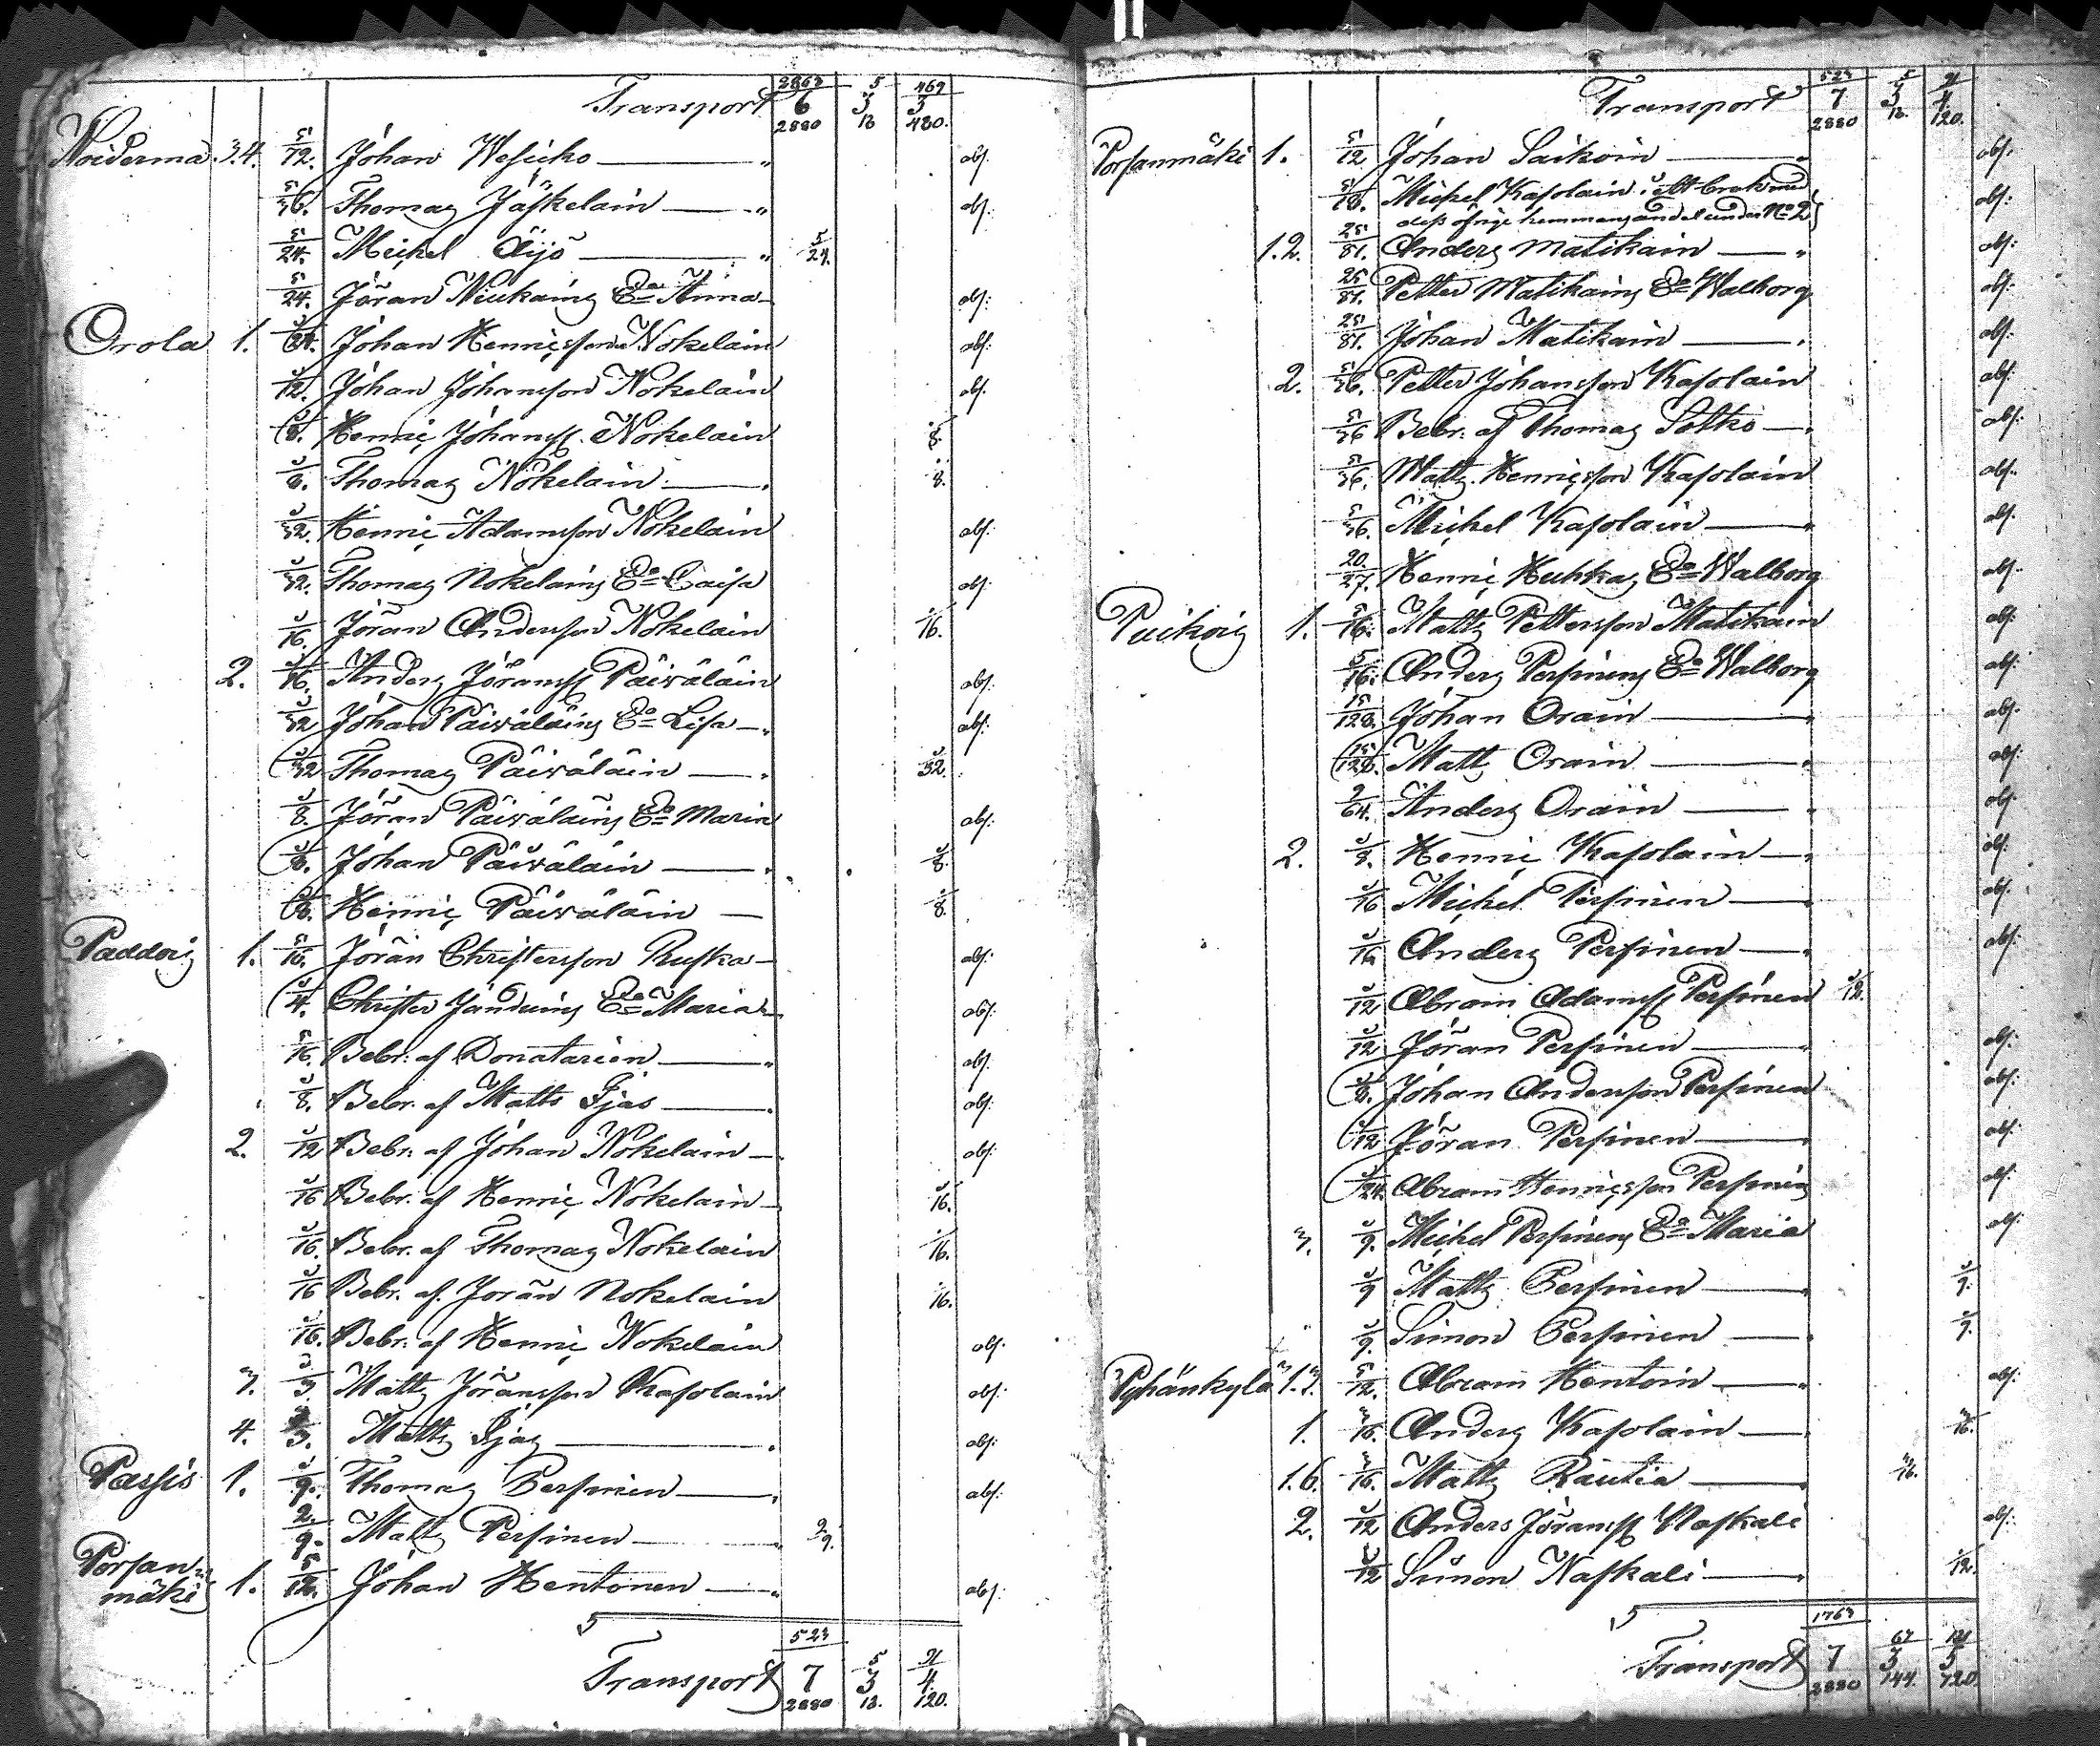 Transport 6 2863/2880 3 5/18 3 469/480.
Noidermä 3.4. 5/12. Johan Wesicko — abs.
5/36. Thomas Jäskeläin — abs:
5/24. Michel Äijö — 5/24.
5/24. Jöran Niukains Eka Anna — abs:
Orola 1. Johan Henricsson Nokelain abs:
1/12. Johan Johansson Nokelain abs.
1/8. Henric Johanss. Nokelain 1/8.
1/8. Thomas Nokelain — 1/8.
1/32. Henric Adamsson Nokelain abs:
1/32. Thomas Nokelains Eka Caisa abs:
1/16. Jöran Andersson Nokelain 1/16.
2. 1/16. Anders Jöranss Päiväläin abs:
1/32 Johan Päiväläins Eka Lisa — abs:
1/32 Thomas Päiväläin — 1/32.
1/8. Jöran Päiväläins Eka Maria abs:
1/8. Johan Päiväläin — 1/8.
1/8. Henric Päiväläin — 1/8.
Paddois 1. 5/16. Jöran Christersson Ruska — abs:
1/4. Christer Eka Maria — abs:
5/16. Bebr: af Donatarien — abs.
1/8. Bebr. af Matts Ijäs — abs:
2. 1/12 Bebr: af Johan Nokelain — abs:
1/16 Bebr. af Henric Nokelain — 1/16.
1/16. Bebr. af Thomas Nokelain 1/16.
1/16 Bebr. af Jöran Nokelain 1/16.
1/16. Bebr: af Henric Nokelain abs.
3. 1/3. Matts Jöransson Kasolain abs:
4. Matts Ijäs — abs:
Parsis 1. 1/9. Thomas Persinen — abs:
2/9. Matts Persinen — 2/9.
Porsan-
mäki 1. 5/12. Johan Hentonen — abs:
Transport 7 523/2880 3 5/18. 4 91/120.
Transport 7 523/2880 3 5/18. 4 91/120.
Porsanmäki 1. 5/12 Johan Saikoin — abs:
5/18. Michel Kasolain i ett bruk med abs:
dess öfrige hemmans andel under No 2
1.2. 25/81. Anders Matikain — abs:
25/81. Petter Matikains Eka Walborg abs:
25/81. Johan Matikain — abs:
2. 5/36. Petter Johansson Kasolain abs:
5/36 Bebr: af Thomas Sotko — abs:
5/36. Matts Henricsson Kasolain abs.
5/36. Michel Kasolain — abs.
20/27. Henric Huhkas Eka Walborg abs.
Puikois 1. 5/16. Matts Pettersson Matikain abs:
5/16. Anders Persinens Eka Walborg abs:
15/128. Johan Orain — abs.
15/128. Matts Orain — abs:
9/64. Anders Orain — abs.
2. 1/8. Henric Kasolain — abs.
1/16 Michel Persinen — abs.
1/16 Anders Persinen — abs:
1/12 Abram Adamss Persinen 1/12.
1/12 Jöran Persinen — abs:
1/8. Johan Andersson Persinen abs:
1/12 Jöran Persinen — abs:
1/24. Abram Henricsson Persinen abs:
3. 1/9. Michel Persinens Eka Maria abs:
1/9 Matts Persinen — 1/9.
1/9. Simon Persinen — 1/9.
Pyhänkylä 1.3. 5/12. Abram Hentoin — abs:
1. 3/16. Anders Kasolain — 3/16.
1.6. 3/16. Matts Rautia — 3/16.
2. 1/12 Anders Jöranss Naskali abs:
1/12 Simon Naskali — 1/12.
Transport 7 1763/2880 3 67/144. 5 121/720.